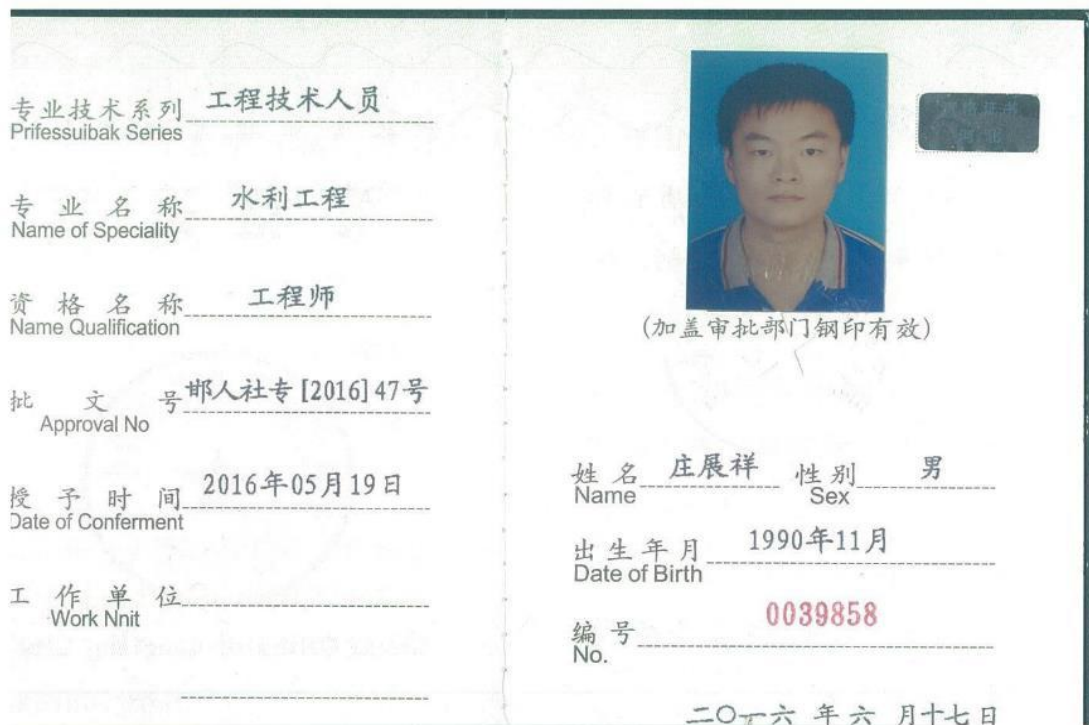 专业技术系列 工程技术人员
Prifessuibak Series
专业名称 水利工程
Name of Speciality
资格名称 工程师
Name Qualification
批文号 邯人社专[2016]47号
Approval No
授予时间 2016年05月19日
Date of Conferment
工作单位
Work Nnit
(加盖审批部门钢印有效)
姓名 庄展祥 性别 男
Name Sex
出生年月 1990年11月
Date of Birth
编号 0039858
No.
二〇一六 年 六 月十七日